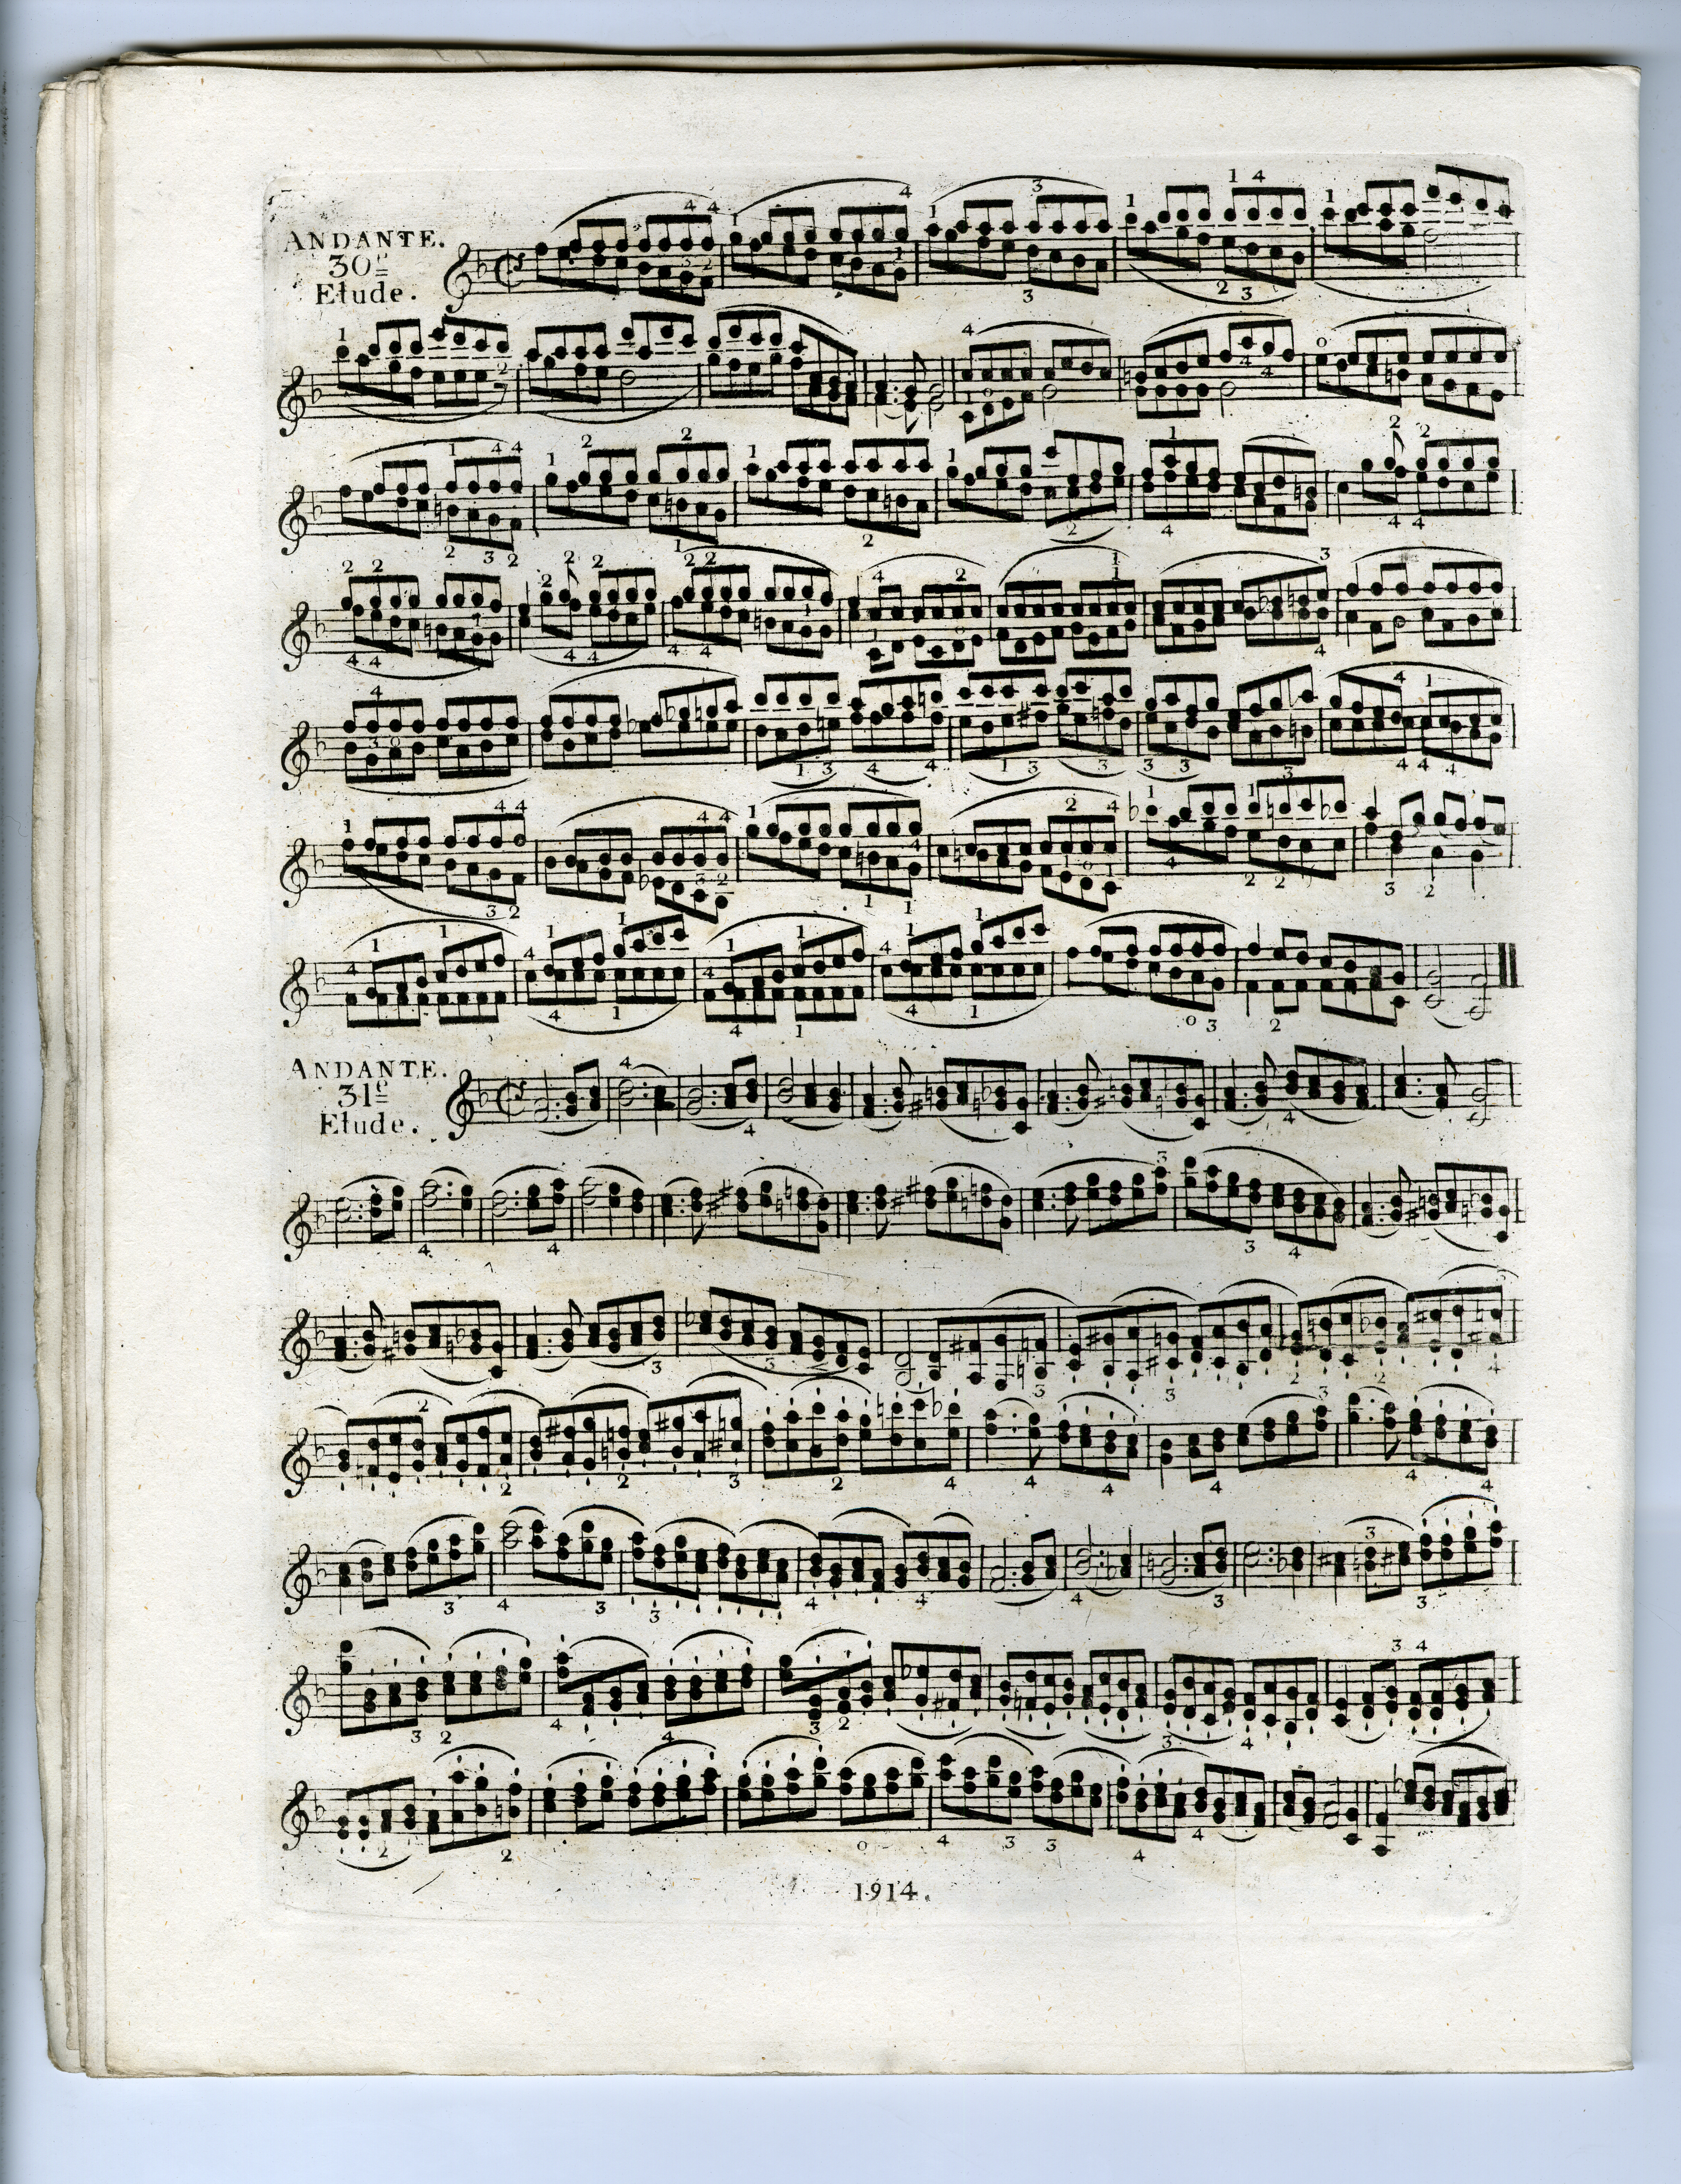 ANDANTE.
30e
Etude.
ANDANTE.
31e
Etude.
1914.